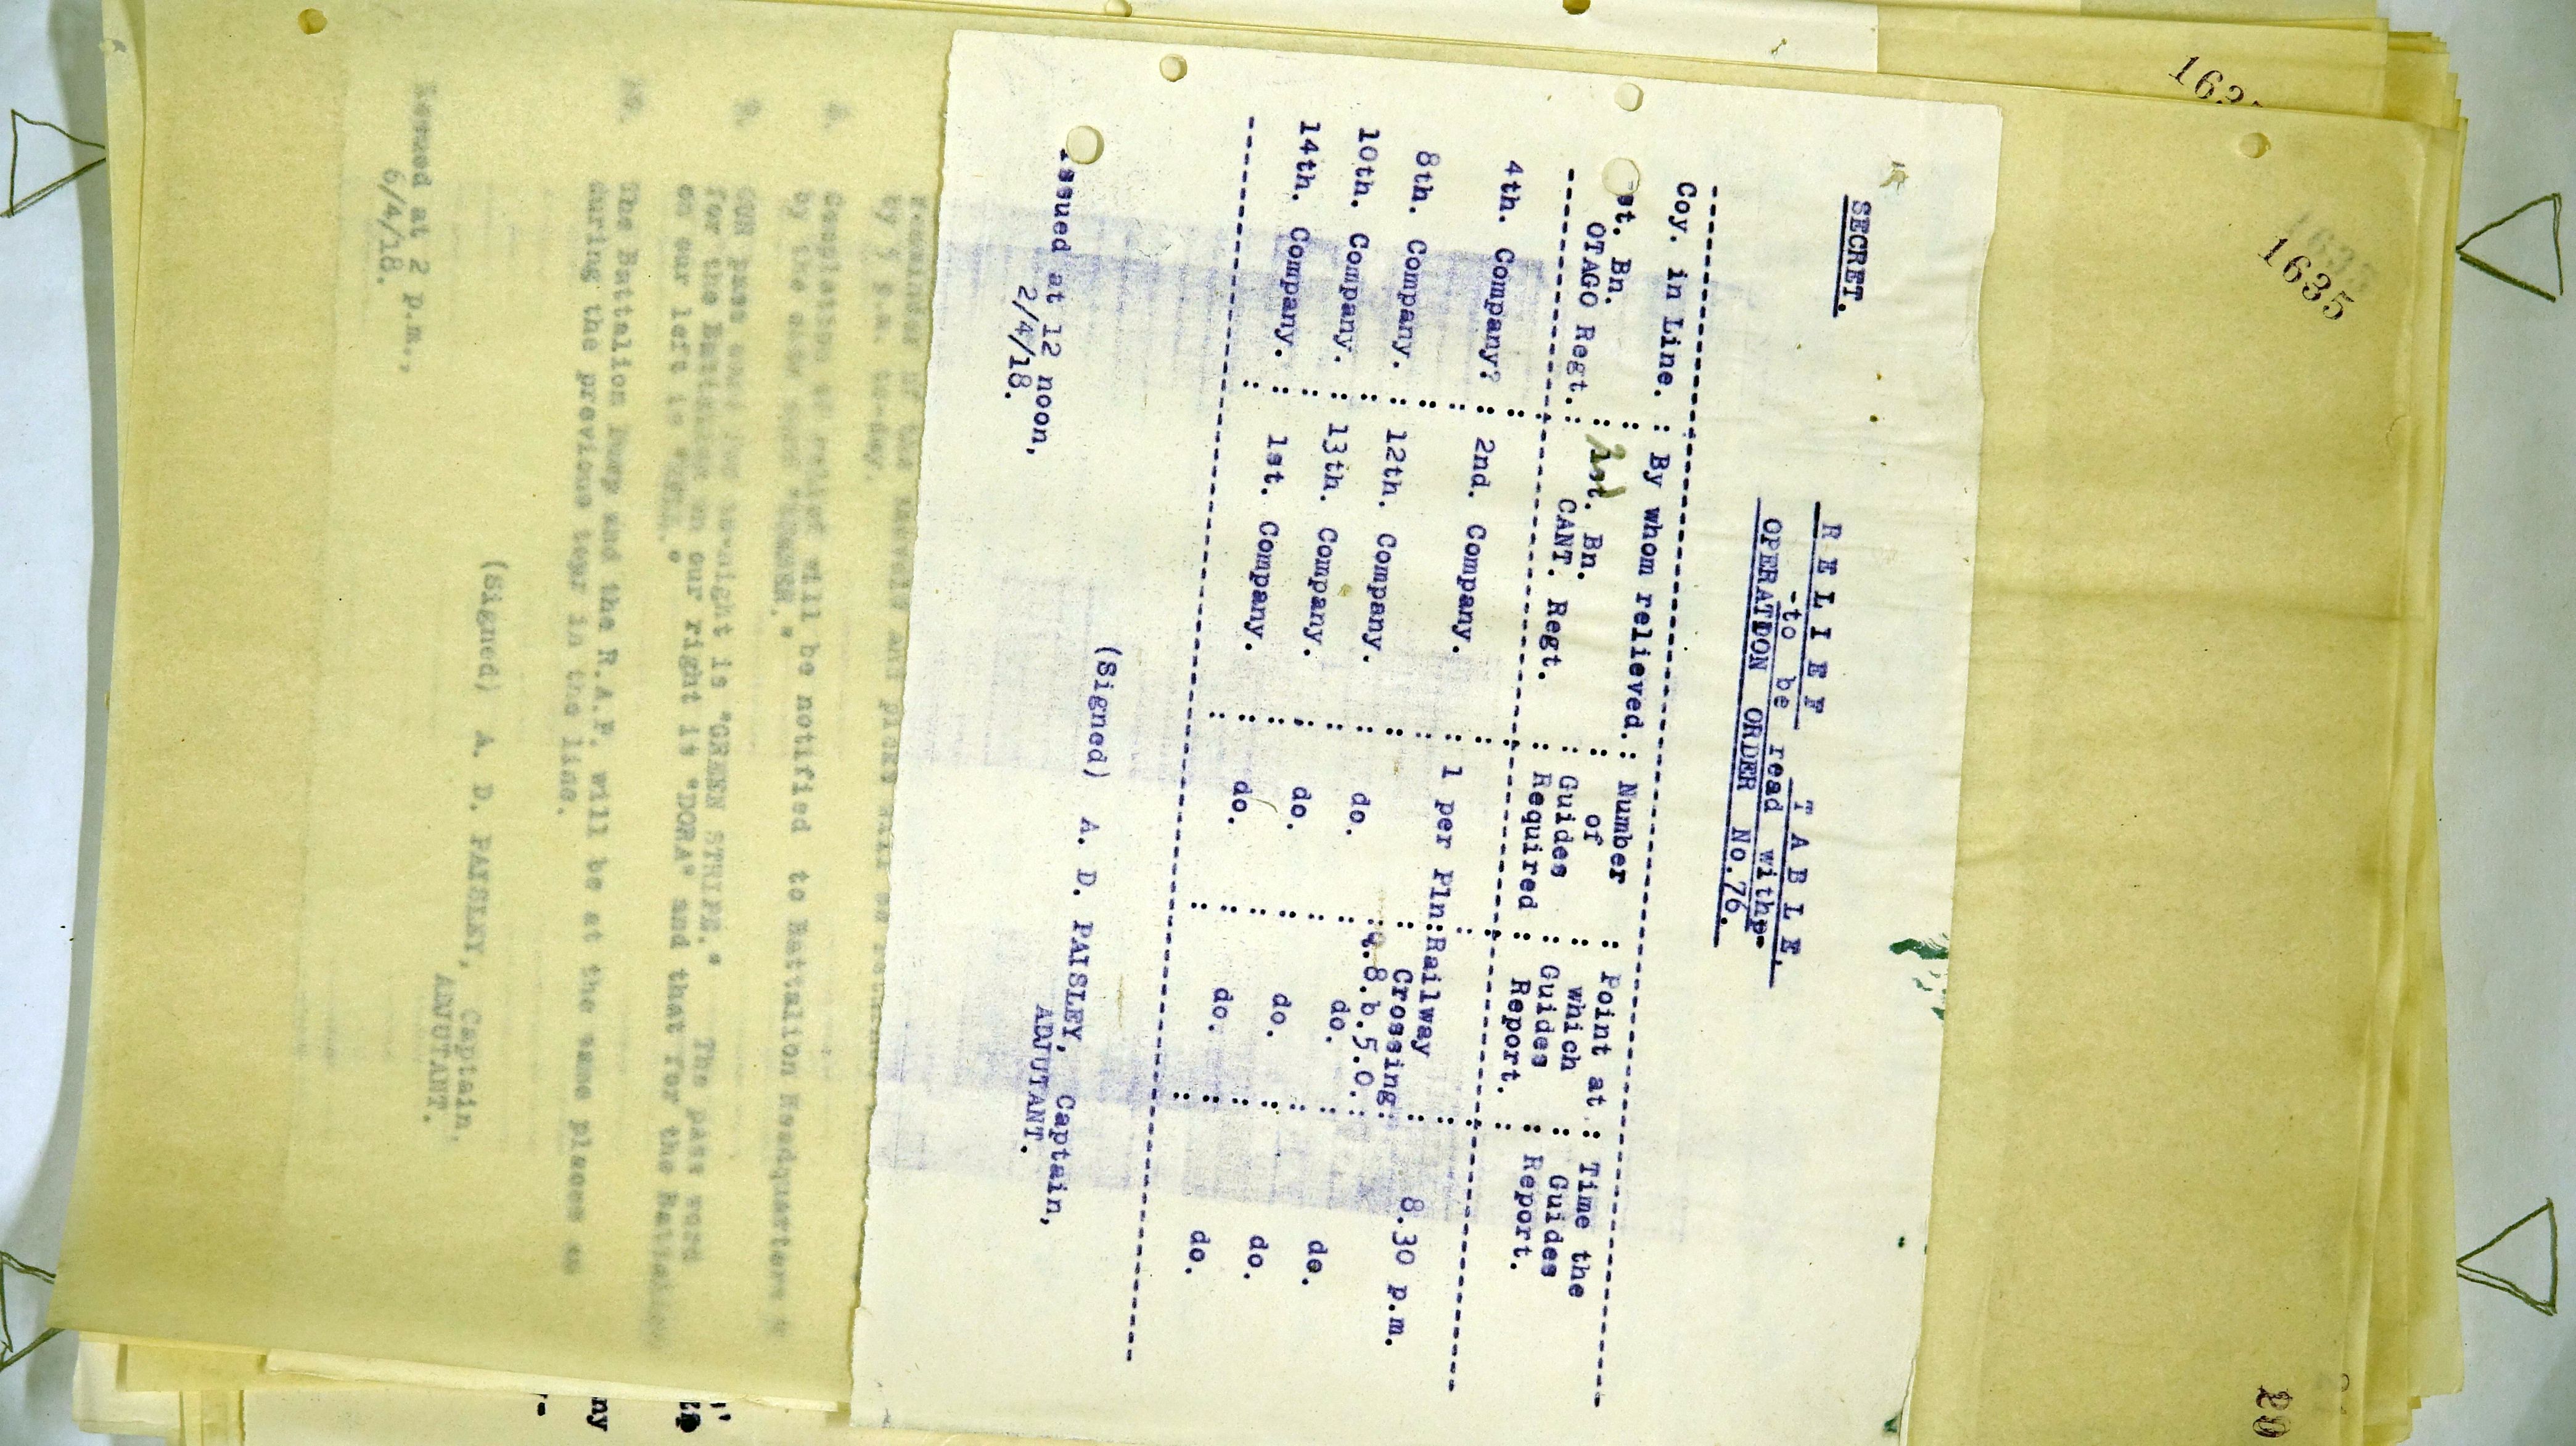 SECRET.
R E L I E F   T A B L E.
-to be read with-
OPERATION ORDER No.76.
Coy. in Line. : By whom relieved. : Number : Point at : Time the
st. Bn. : 1st. Bn. : of : which : Guides
OTAGO Regt. : CANT. Regt. : Guides : Guides : Report.
Required : Report.
4th. Company? : 2nd. Company. : 1 per Pln: Railway : 8.30 p.m.
Crossing:
8.b.5.0.:
8th. Company. : 12th. Company. : do. : do. : do.
10th. Company. : 13th. Company. : do. : do. : do.
14th. Company. : 1st. Company. : do. : do. : do.
(Signed) A. D. PAISLEY, Captain,
ADJUTANT.
Issued at 12 noon,
2/4/18.
by 5 p.m. to-day.
8. Completion of relief will be notified to Battalion Headquarters
by the code word
9. OUR pass word for to-night is "GREEN STRIPE." The pass word
for the Battalion on our right is "DORA" and that for the Battalion
on our left is
10. The Battalion Dump and the R.A.P. will be at the same places as
during the previous tour in the line.
(Signed) A. D. PAISLEY, Captain,
ADJUTANT.
Issued at 2 p.m.,
6/4/18.
1635
163
20
ny